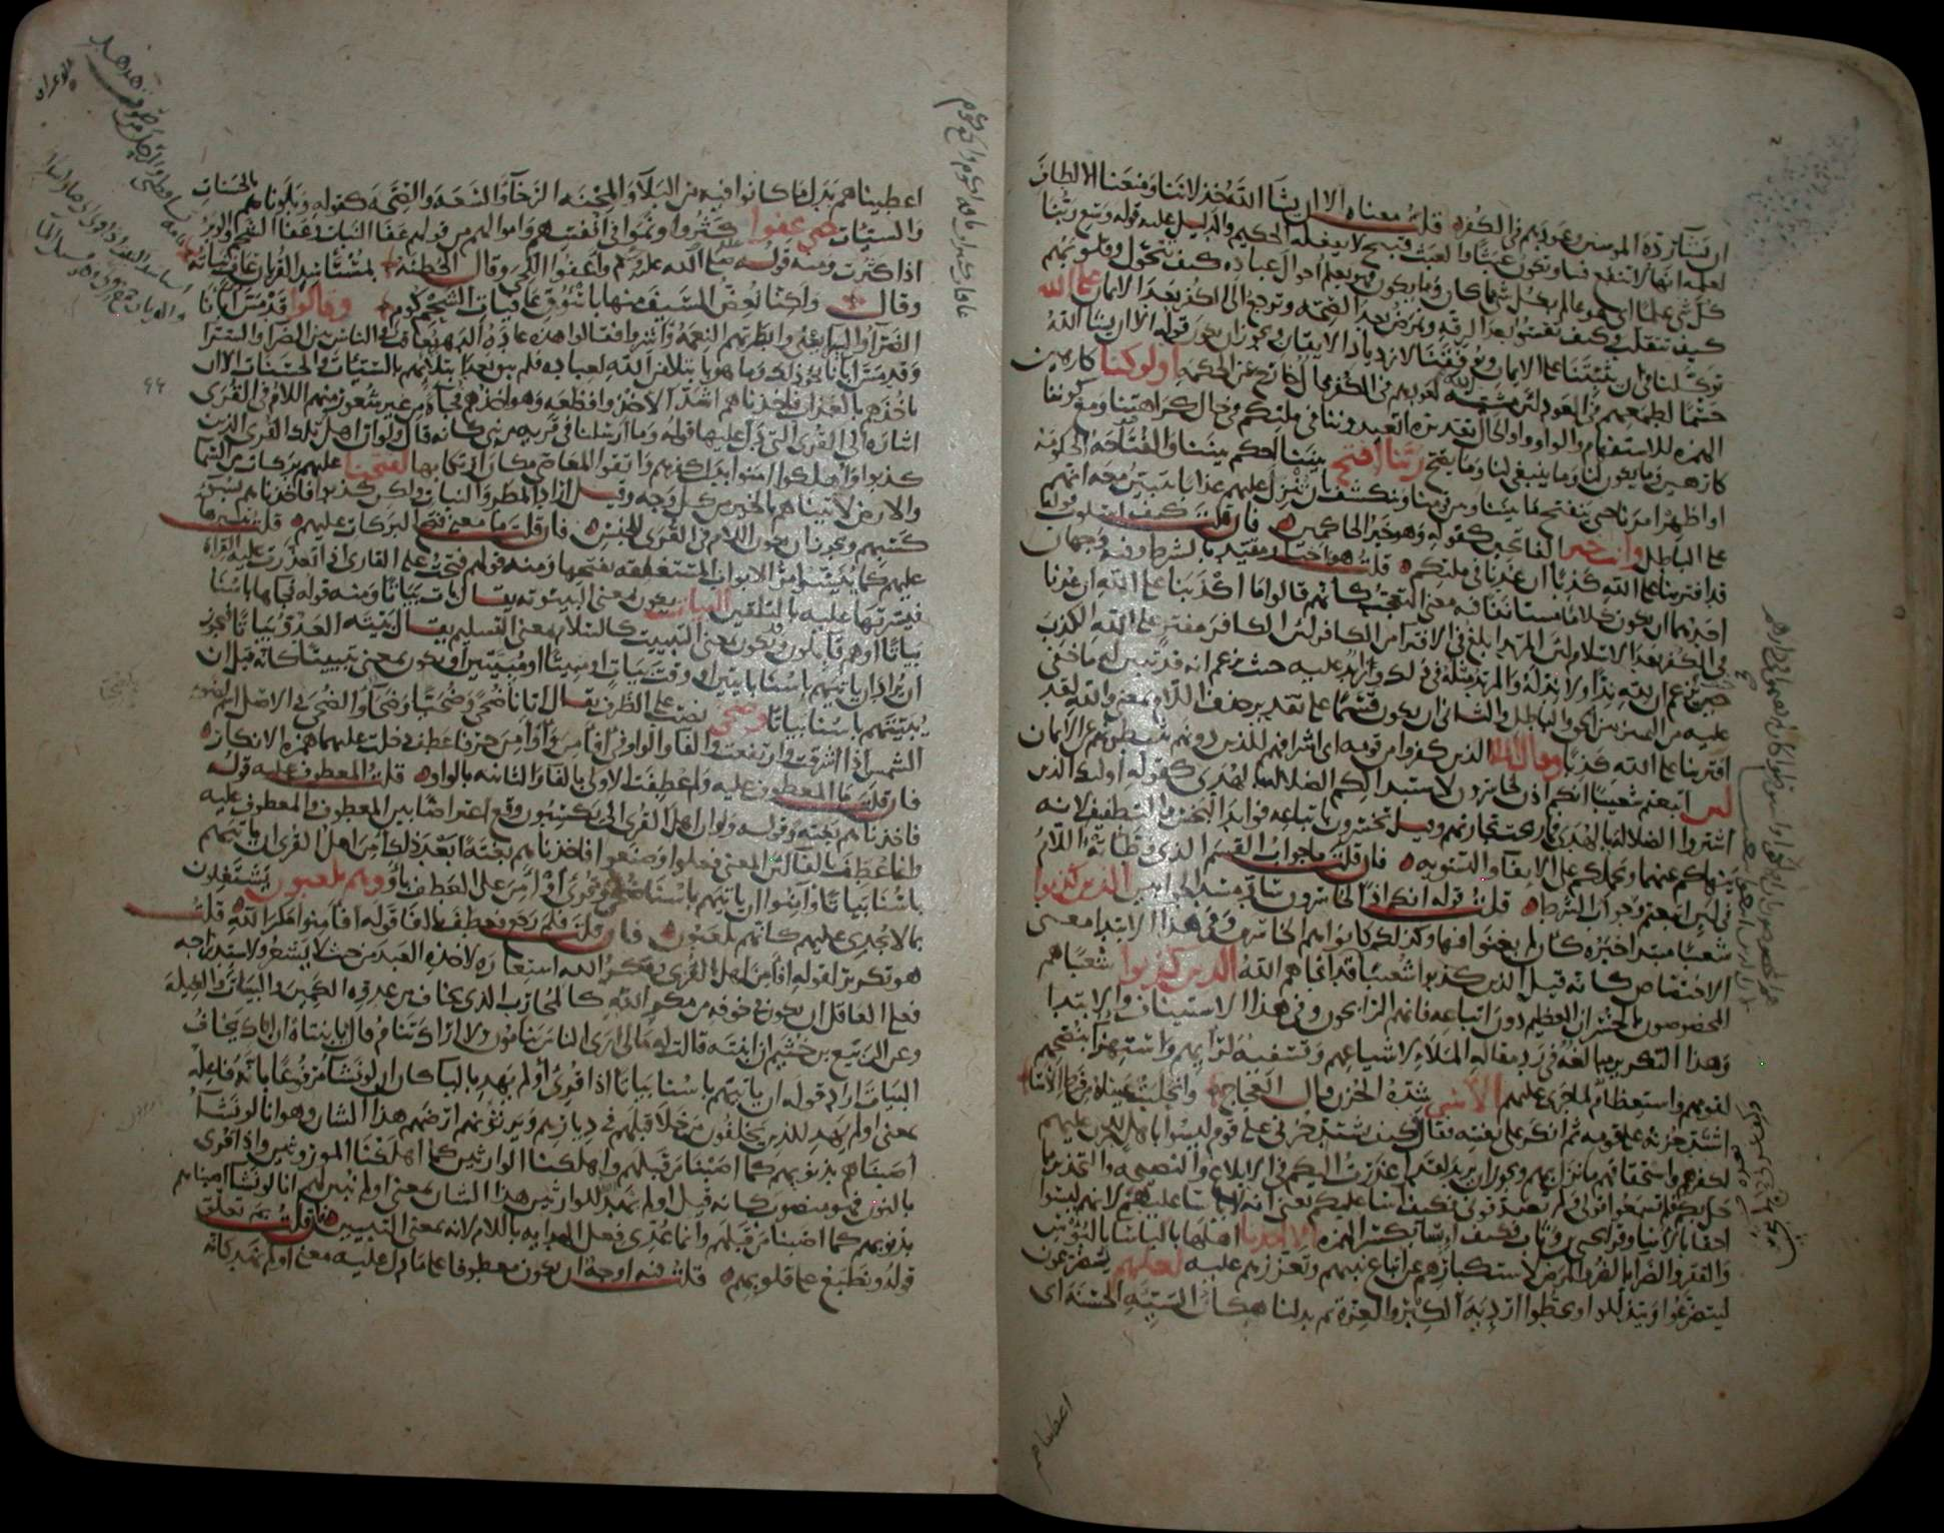 ان يشآ ردة المومنين وعودهم في الكفر ه قلت معناه الا ان يشآ الله خذلاننا ومنعنا الالطاف
لعلمه انها لا تنفع فينا وتكون عبثا والعبث قبيح لا يفعله الحكيم والدليل عليه قوله وسع ربنا
كل شي علما اي هو عالم بكل شي مما كان وما يكون فهو يعلم احوال عباده كيف تتحول وقلوبهم
كيف تتقلب وكيف تقسوا بعد الرقه وتمرض بعد الصحه وترجع الى الكفر بعد الايمان على الله
توكلنا في ان يثبتنا على الايمان ويوفقنا لازدياد الايقان ويجوز ان يكون قوله الا ان يشآ الله
حسما لطمعهم في العود لان مشيه الله لعودهم في الكفر محال خارج عن الحكمه اولو كنا كارهين
الهمزه للاستفهام والواو واو الحال تقديره اتعيدوننا في ملتكم في حال كراهتنا ومع كوننا
كارهين وما يكون لنا وما ينبغي لنا وما يصح ربنا افتح بيننا احكم بيننا والفتاحه الحكومه
او اظهر امرنا حتى ينفتح ما بيننا وبين قومنا وينكشف بان تنزل عليهم عذابا يتبين معه انهم
على الباطل وانت خير الفاتحين كقوله وهو خير الحاكمين ه فان قلت كيف اسلوب قوله
قد افترينا على الله كذبا ان عدنا في ملتكم ه قلت هو اخبار مقيد بالشرط وفيه وجهان
احدهما ان يكون كلاما مستانفا فيه معنى التعجب كانهم قالوا ما اكذبنا على الله ان عدنا
في الكفر بعد الاسلام لان المرتد ابلغ في الافترا من الكافر لان الكافر مفتر على الله الكذب
حيث يزعم ان لله ندا ولا ند له والمرتد مثله في ذلك وزايد عليه حيث يزعم انه قد تبين له ما خفي
عليه من التمييز بين الحق والباطل والثاني ان يكون قسما على تقدير حذف اللام بمعنى والله لقد
افترينا على الله كذبا وقال الملا الذين كفروا من قومه اي اشرافهم للذين دونهم يثبطونهم عن الايمان
لين اتبعتم شعيبا انكم اذن لخاسرون لاستبدالكم الضلاله بالهدى كقوله اولئك الذين
اشتروا الضلاله بالهدى فما ربحت تجارتهم وقيل تخسرون باتباعه فوايد البخس والتطفيف لانه
ينهاكم عنهما ويحملكم على الايفآ والتسويه ه فان قلت ما جواب القسم الذي وطاته اللام
في لين اتبعتم وجواب الشرط ه قلت قوله انكم اذا لخاسرون ساد مسد الجوابين الذين كذبوا
شعيبا مبتدا خبره كان لم يغنوا فيها وكذلك كانوا هم الخاسرين وفي هذا الابتدا معنى
الاختصاص كانه قيل الذين كذبوا شعيبا قد انجاهم الله الذين كذبوا شعيبا هم
المخصوصون بالخسران العظيم دون اتباعه فانهم الرابحون وفي هذا الاستيناف والابتدا
وهذا التكرير مبالغه في رد مقاله الملا لاشياعهم وتسفيه لرايهم واستهزآ بنصحهم
لقومهم واستعظام لما جرى عليهم الاسى شده الحزن قال العجاج وانحلبت عيناه من فرط الاسا
اشتد حزنه على قومه ثم انكر على نفسه فقال فكيف يشتد حزني على قوم ليسوا باهل للحزن عليهم
لكفرهم واستحقاقهم ما نزل بهم ويجوز ان يريد لقد اعذرت اليكم في الابلاغ والنصيحه والتحذير مما
حل بكم فلم تسمعوا قولي ولم تصدقوني فكيف اسا عليكم يعني انه لا ياسا عليهم لانهم ليسوا
احقا بالاسا وقرا يحيى بن وثاب فكيف ايسا بكسر الهمزه الا اخذنا اهلها بالباسا بالبوس
والفقر والضرا بالضر والمرض لاستكبارهم عن اتباع نبيهم وتعززهم عليه لعلهم يضرعون
ليتضرعوا ويتذللوا ويحطوا ارديه الكبر والعزه ثم بدلنا مكان السيئه الحسنه اي
اعطيناهم
اعطيناهم بدل ما كانوا فيه من البلآ والمحنه الرخآ والسعه والصحه كقوله وبلوناهم بالحسنات
والسيئات حتى عفوا كثروا ونموا في انفسهم واموالهم من قولهم عفا النبات وعفا الشحم والوبر
اذا كثرت ومنه قوله صلى الله عليه وسلم واعفوا اللحى وقال الحطيئه بمستاسد القريان عاف نباته
وقال ولكنا نعض السيف منها باسوق عافيات الشحم كوم وقالوا قد مس ابانا
الضرآ والسرآ يعني وابطرتهم النعمه واشروا فقالوا هذه عاده الدهر يعاقب في الناس بين الضرآ والسرا
وقد مس ابانا نحو ذلك وما هو بابتلا من الله لعباده فلم يبق بعد ابتلائهم بالسيئات والحسنات الا ان
ناخذهم بالعذاب فاخذناهم اشد الاخذ وافظعه وهو اخذهم فجآة من غير شعور منهم اللام في القرى
اشاره الى القرى التي دل عليها قوله وما ارسلنا في قريه من نبي كانه قال ولو ان اهل تلك القرى الذين
كذبوا واهلكوا امنوا بدل كفرهم واتقوا المعاصي مكان ارتكابها لفتحنا عليهم بركات من السما
والارض لاتيناهم بالخير من كل وجه وقيل اراد المطر والنبات ولكن كذبوا فاخذناهم بسبب
كسبهم ويجوز ان يكون اللام في القرى للجنس ه فان قلت ما معنى فتح البركات عليهم ه قلت تيسيرها
عليهم كما ييسر امر الابواب المستغلقه بفتحها ومنه قولهم فتحت على القارئ اذا تعذرت عليه القراه
فيسرتها عليه بالتلقين البيات يكون بمعنى البيتوته يقال بات بياتا ومنه قوله فجاها باسنا
بياتا او هم قايلون وقد يكون بمعنى التبييت كالسلام بمعنى التسليم يقال بيته العدو بياتا فيجوز
ان يراد ان ياتيهم باسنا بايتين او وقت بيات او مبيتا او مبيتين او يكون بمعنى تبييتا كانه قيل ان
يبيتهم باسنا بياتا وضحى نصب على الظرف يقال اتانا ضحى وضحيا وضحآ والضحى في الاصل اسم لضو
الشمس اذا اشرقت وارتفعت والفا والواو في افامن واوامن حرفا عطف دخلت عليهما همزه الانكار ه
فان قلت ما المعطوف عليه ولم عطفت الاولى بالفا والثانيه بالواو ه قلت المعطوف عليه قوله
فاخذناهم بغته وقوله ولو ان اهل القرى الى يكسبون وقع اعتراضا بين المعطوف والمعطوف عليه
وانما عطف بالفا لان المعنى فعلوا وصنعوا فاخذناهم بغته ابعد ذلك امن اهل القرى ان ياتيهم
باسنا بياتا وامنوا ان ياتيهم باسنا ضحى وقرئ او امن على العطف باو وهم يلعبون يشتغلون
بما لا يجدي عليهم كانهم يلعبون ه فان قلت فلم رجع فعطف بالفا قوله افامنوا مكر الله ه قلت
هو تكرير لقوله افامن اهل القرى ومكر الله استعاره لاخذه العبد من حيث لا يشعر ولاستدراجه
فعلى العاقل ان يكون في خوفه من مكر الله كالمحارب الذي يخاف من عدوه الكمين والبيات والغيله
وعن الربيع بن خثيم ان ابنته قالت له ما لي ارى الناس ينامون ولا اراك تنام قال يا بنتاه ان اباك يخاف
البيات اراد قوله ان ياتيهم باسنا بياتا اذا قرئ اولم يهد باليا كان ان لو نشآ مرفوعا بانه فاعله
بمعنى اولم يهد للذين يخلفون من خلا قبلهم في ديارهم ويرثونهم ارضهم هذا الشان وهو انا لو نشآ
اصبناهم بذنوبهم كما اصبنا من قبلهم واهلكنا الوارثين كما اهلكنا الموروثين واذا قرئ
بالنون فهو منصوب كانه قيل اولم نهد للوارثين هذا الشان بمعنى اولم نبين لهم انا لو نشآ اصبناهم
بذنوبهم كما اصبنا من قبلهم وانما عدي فعل الهدايه باللام لانه بمعنى التبيين ه فان قلت بم تعلق
قوله ونطبع على قلوبهم ه قلت فيه اوجه ان يكون معطوفا على ما دل عليه معنى اولم نهد كانه